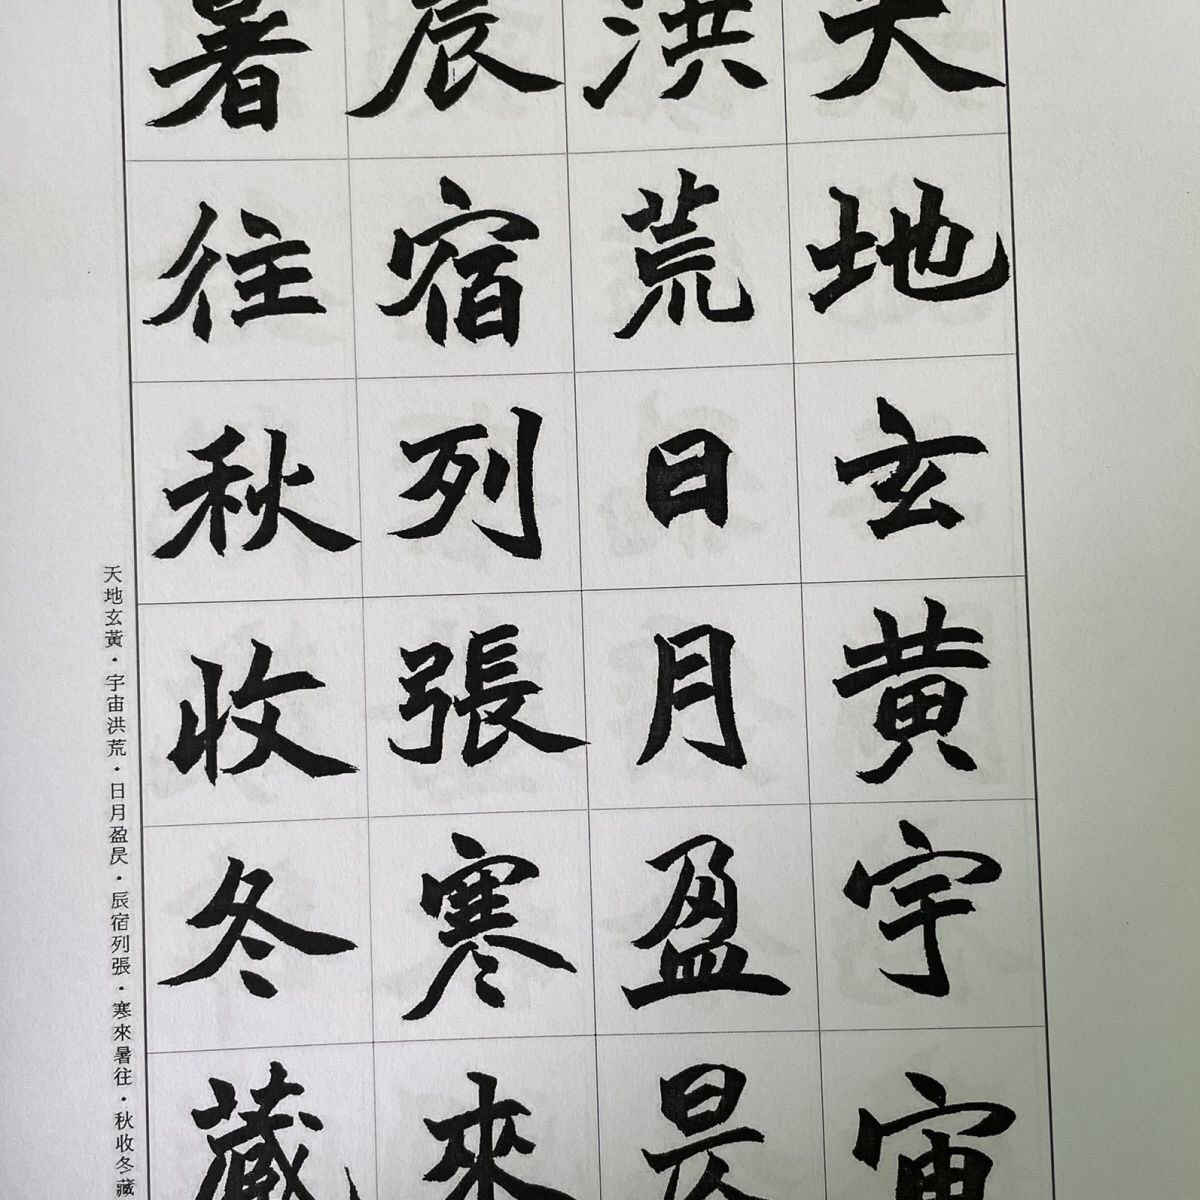 天地玄黄宇宙
洪荒日月盈昃
辰宿列張寒來
暑往秋收冬藏
天地玄黃・宇宙洪荒・日月盈昃・辰宿列張・寒來暑往・秋收冬藏